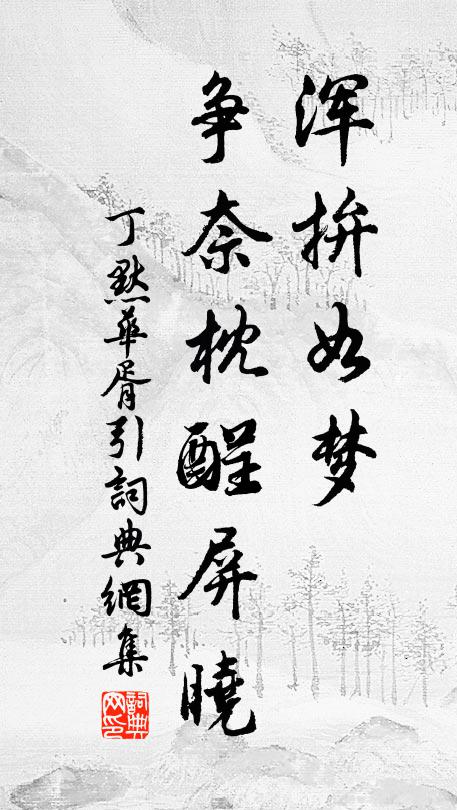 浑拚如梦
争奈枕酲屏曉
丁默華胥引詞典網集
詞典网印